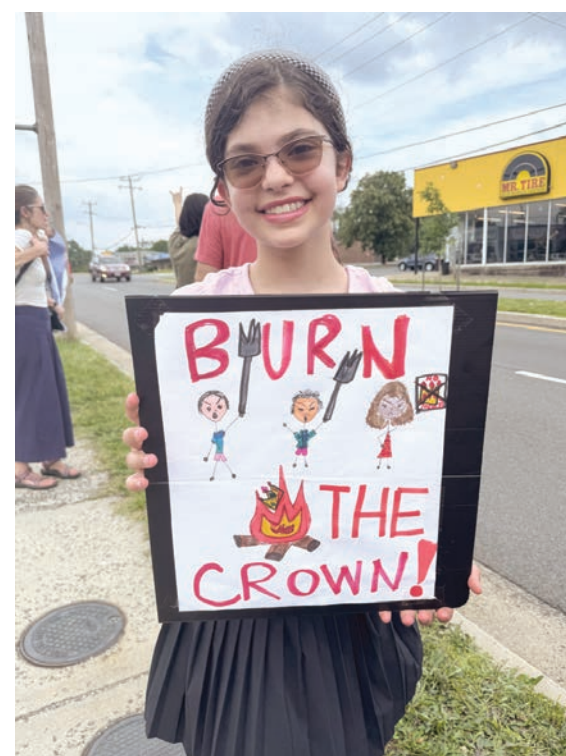 MR. TIRE
BURN
THE
CROWN!